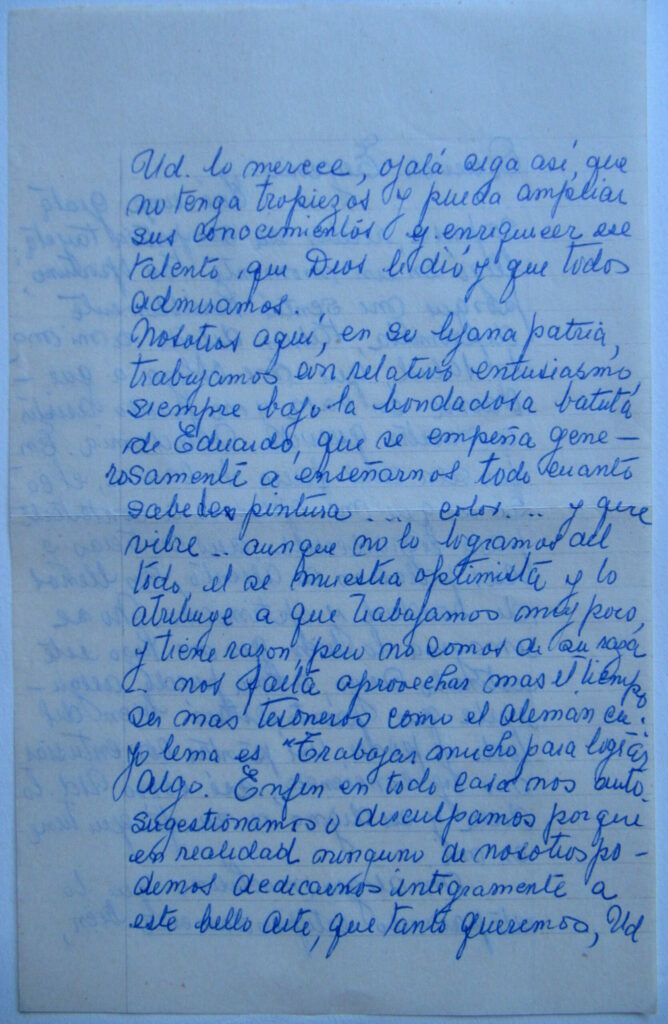 Ud. lo merece, ojalá siga así, que
no tenga tropiezos y pueda ampliar
sus conocimientos y enriquecer ese
talento, que Dios le dió y que todos
admiramos.
Nosotros aqui, en su lejana patria,
trabajamos con relativo entusiasmo,
siempre bajo la bondadosa batuta
de Eduardo, que se empeña gene-
rosamente a enseñarnos todo cuanto
sabe de pintura .... color... y que
vibre .. aunque no lo logramos del
todo, el se muestra optimista y lo
atribuye a que trabajamos muy poco,
y tiene razon, pero no somos de su raza
- nos falta aprovechar mas el tiempo,
ser mas tesoneros como el aleman cu-
yo lema es "Trabajar mucho para lograr
algo. Enfin en todo caso nos auto-
sugestionamos o disculpamos porque
en realidad ninguno de nosotros po-
demos dedicarnos integramente a
este bello arte, que tanto queremos, Ud